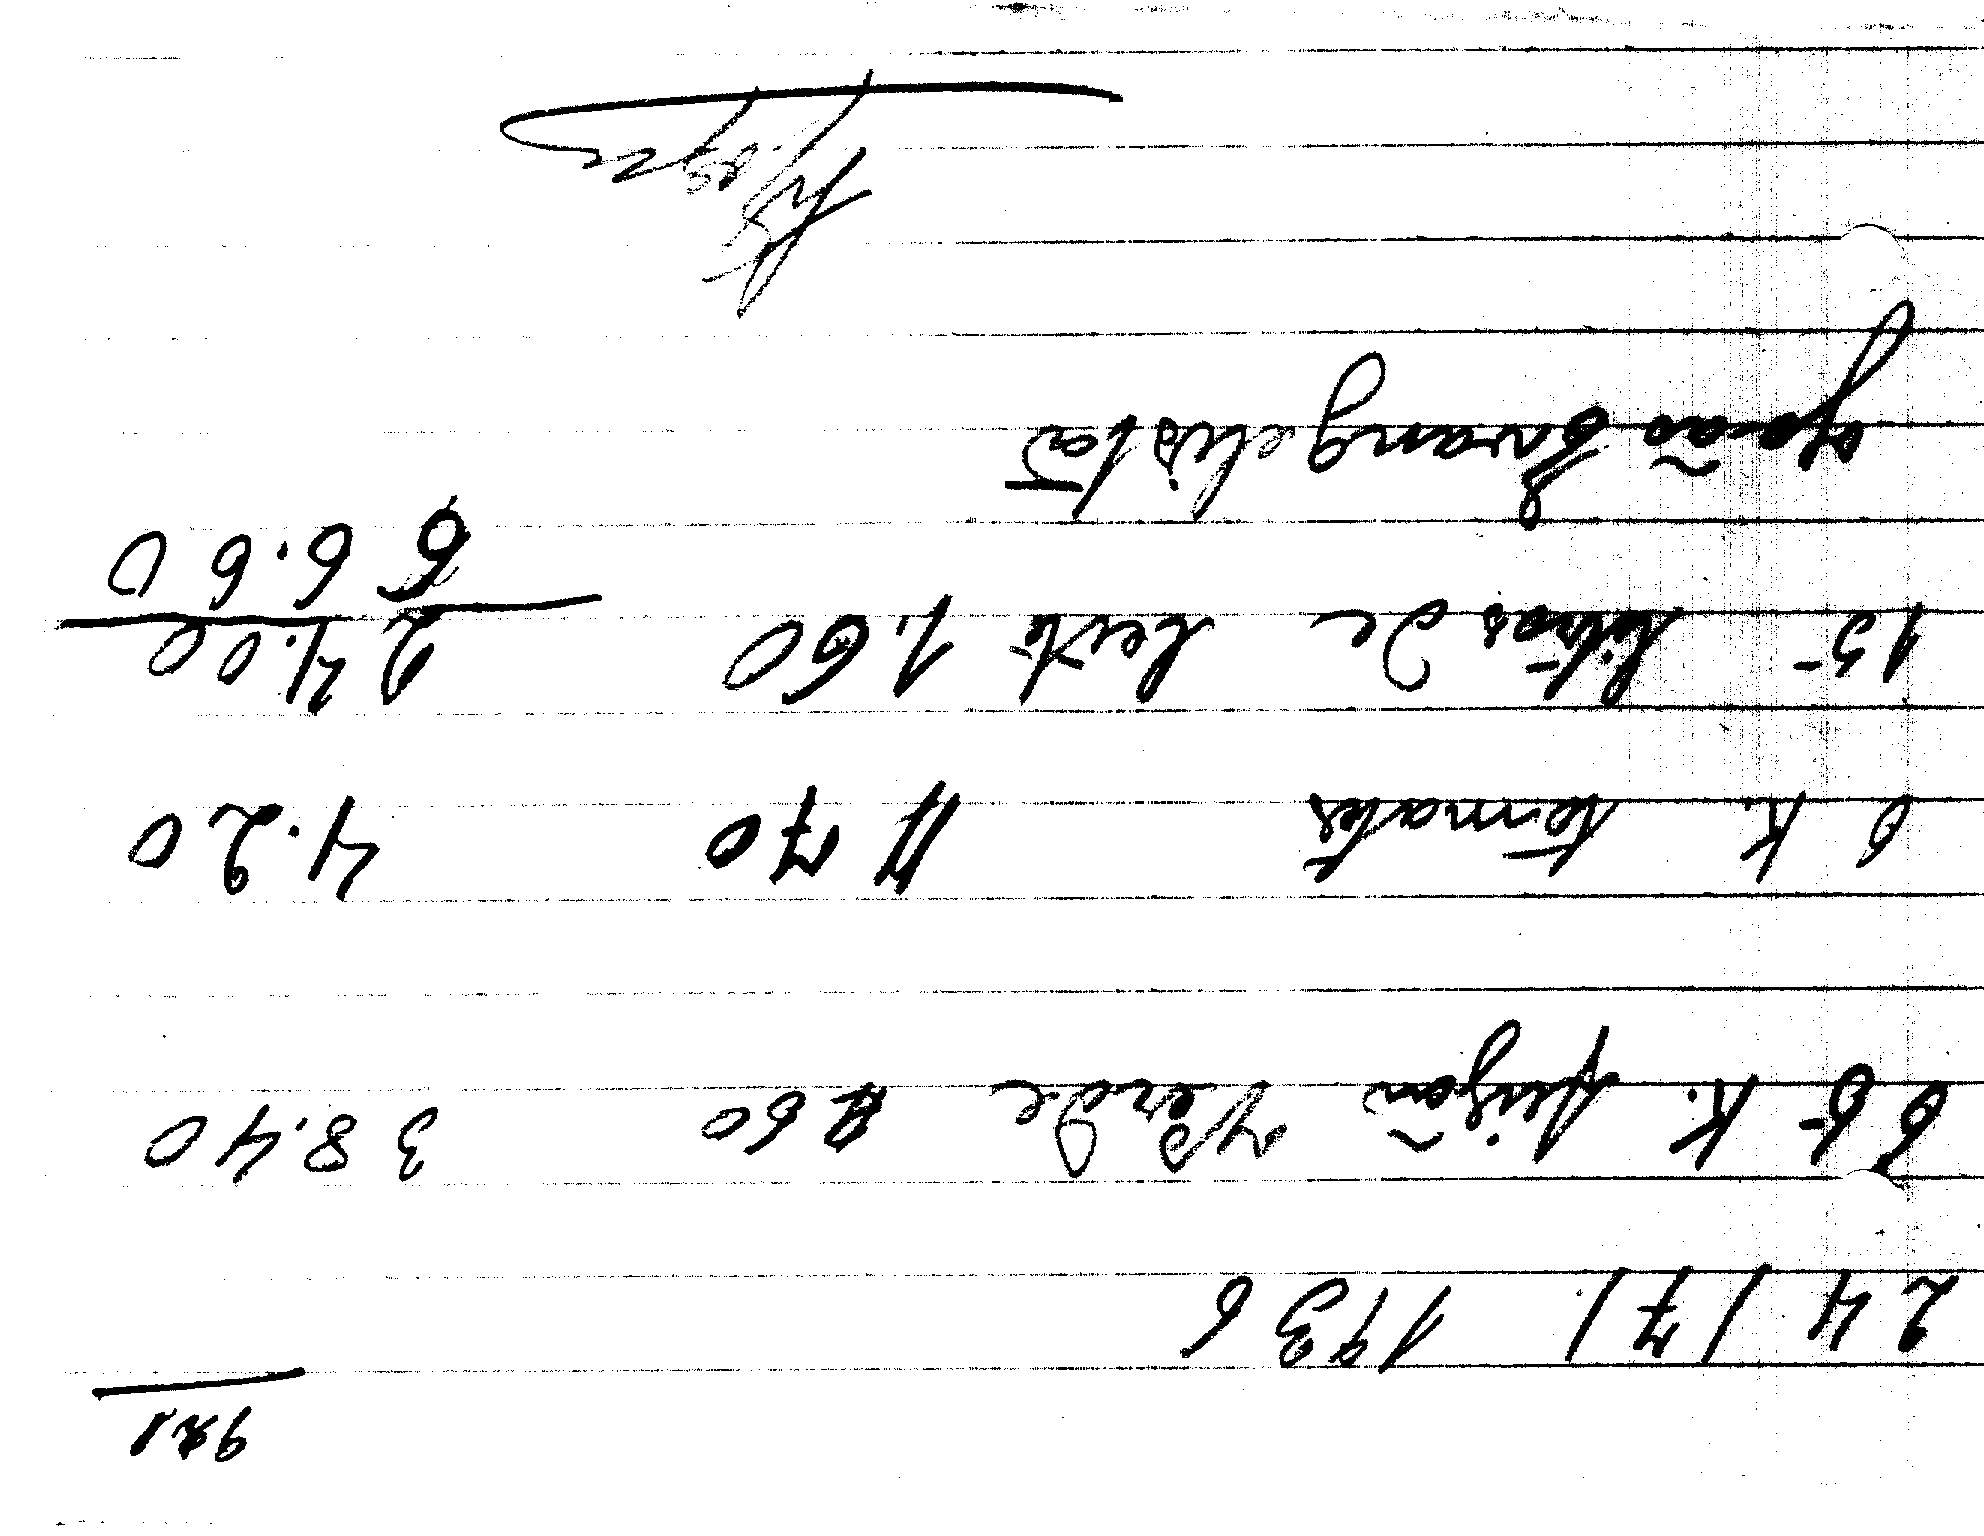 24/7/. 1936
64 k. feijão verde 60 38.40
6 k. tomates 70 4.20
15 litros de leite 1.60 24.00
66.60
João Evangelista